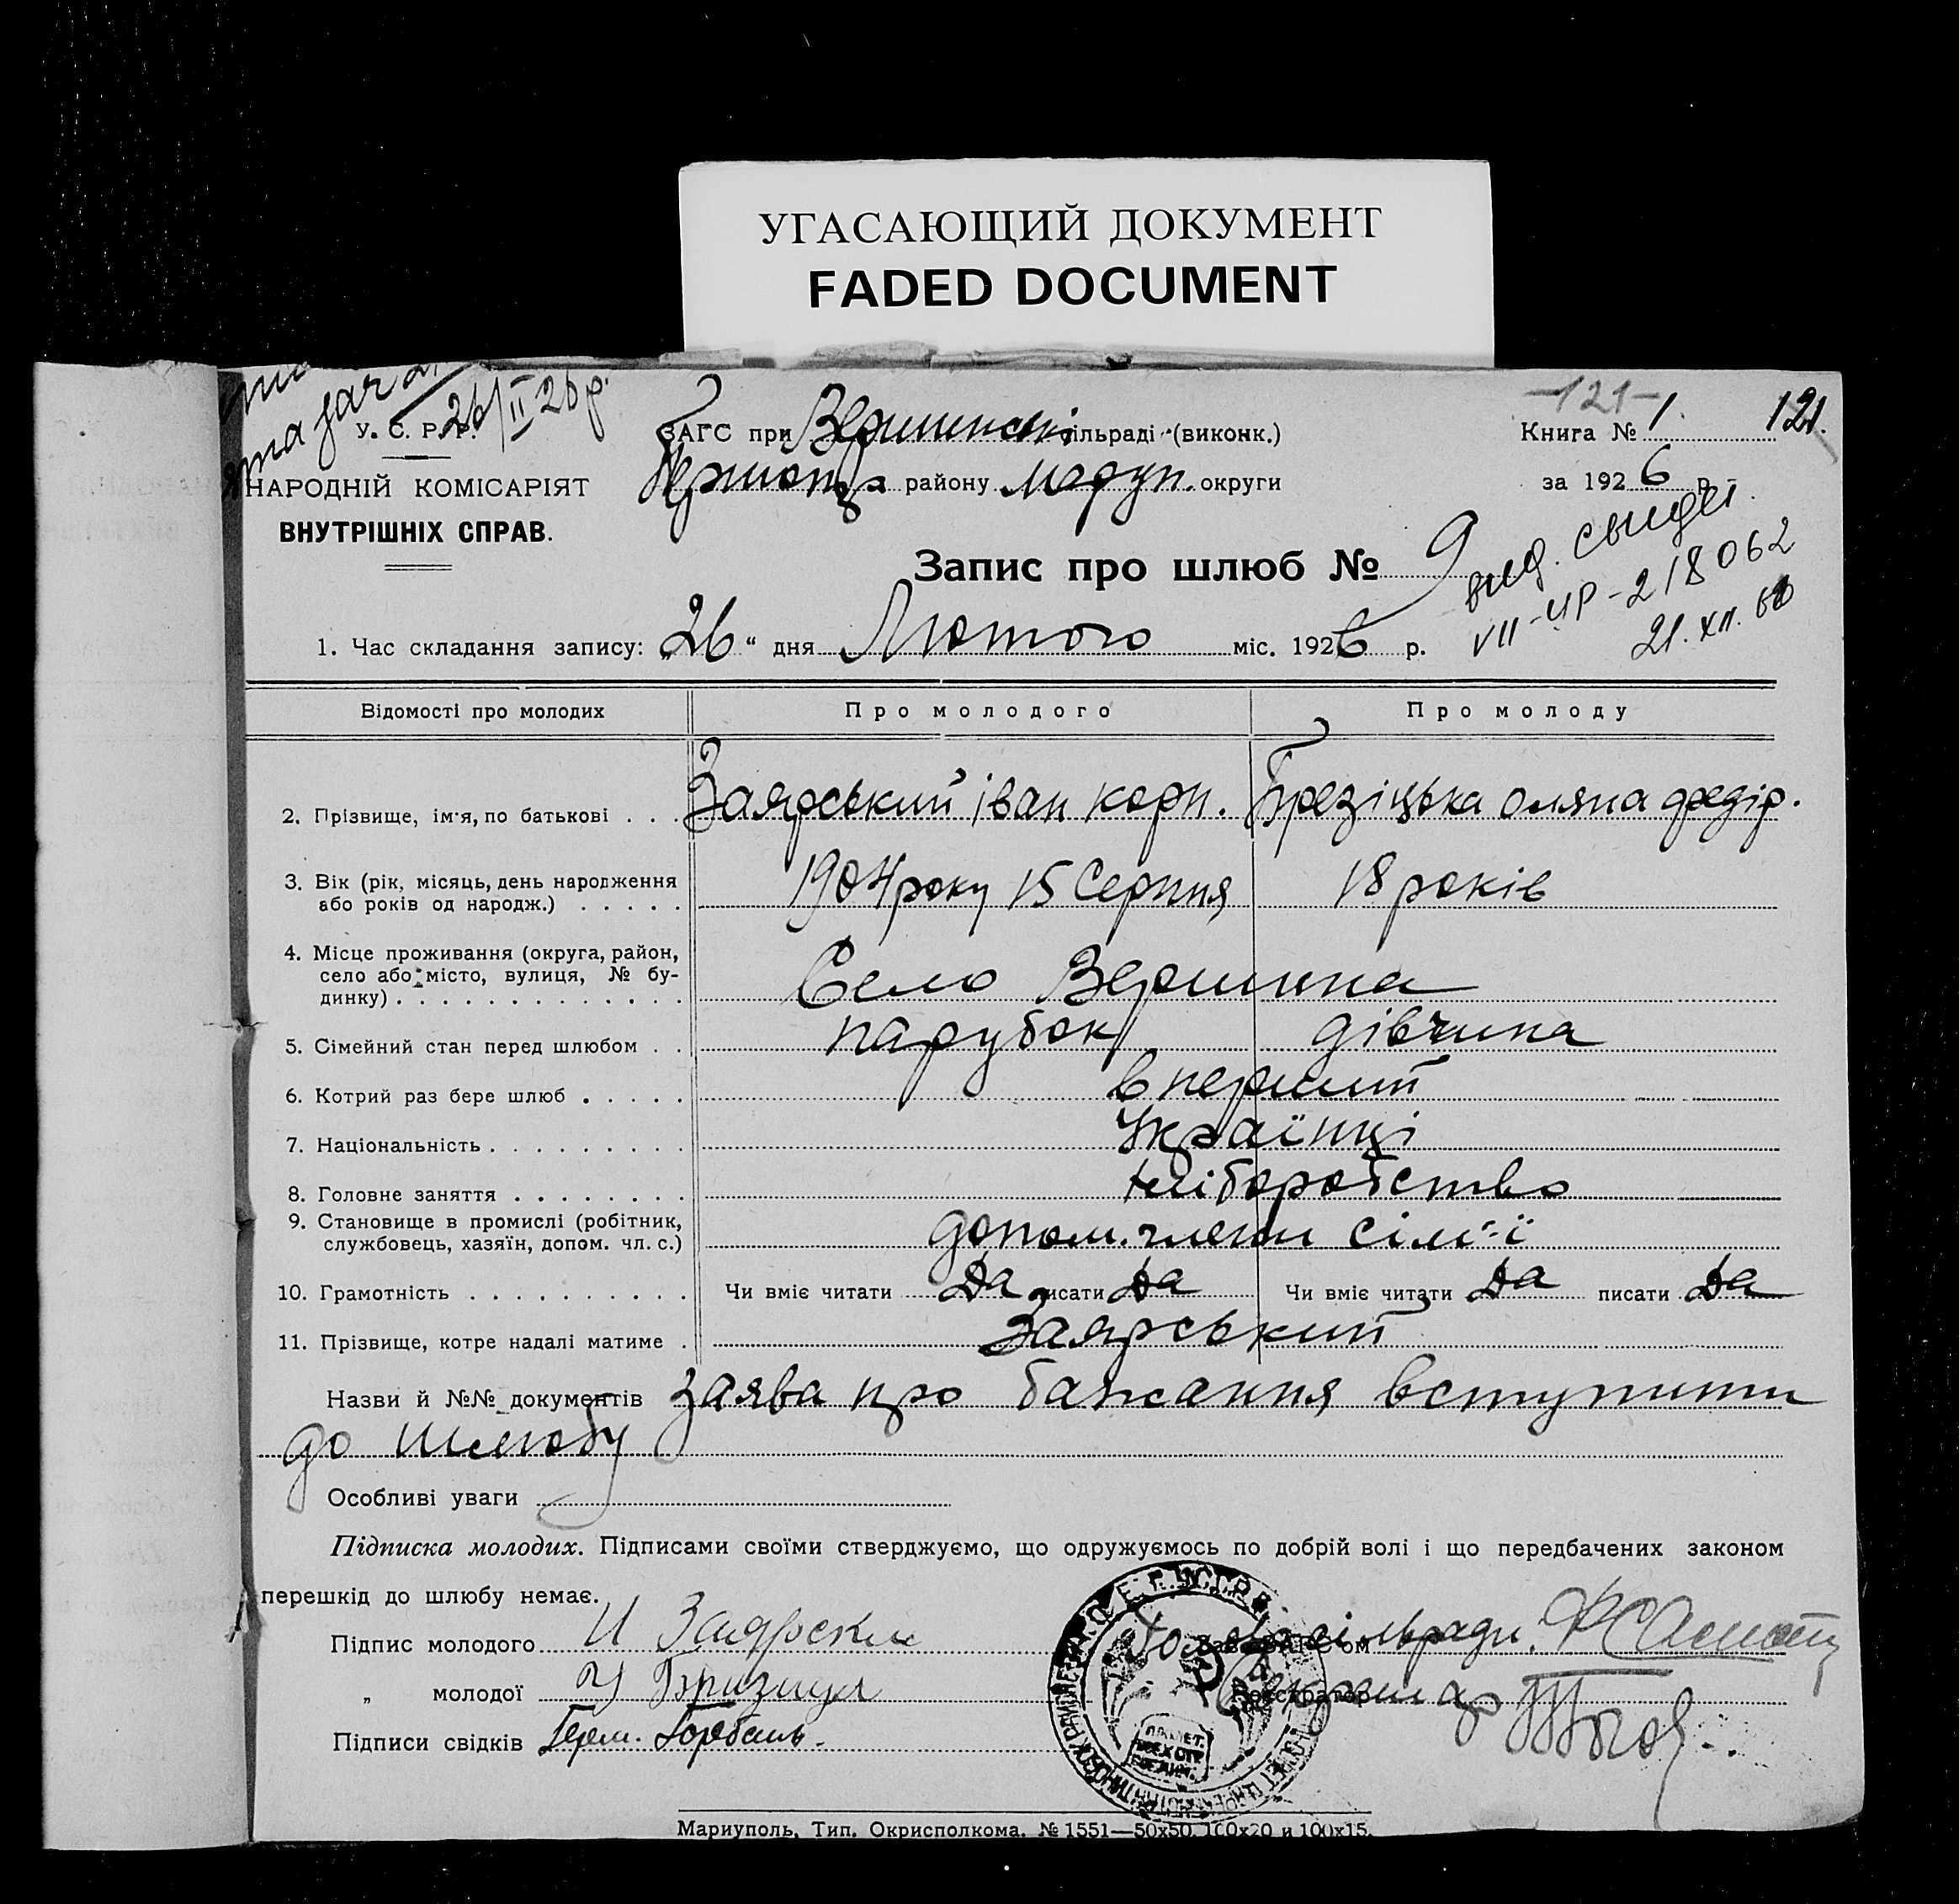 УГАСАЮЩИЙ ДОКУМЕНТ
FADED DOCUMENT
26/II 26 р.
У. С. Р. Р.
НАРОДНІЙ КОМІСАРІЯТ
ВНУТРІШНІХ СПРАВ.
ЗАГС при Вершинській сільраді (виконк.)
району Маріуп. округи
-121-
Книга № 1. 121.
за 1926 р.
Запис про шлюб № 9
вид. свидет.
VII-ИР-218062
21.XII.
1. Час складання запису: „26“ дня Лютого міс. 1926 р.
Відомості про молодих Про молодого Про молоду
2. Прізвище, ім'я, по батькові . . . Заярський іван корн. Брезіцька оляна федір.
3. Вік (рік, місяць, день народження
або років од народж.) . . . . . 1904 року 15 Серпня 18 років
4. Місце проживання (округа, район,
село або місто, вулиця, № бу-
динку) . . . . . . . . . . . . . Село Вершина
5. Сімейний стан перед шлюбом . . парубок дівчина
6. Котрий раз бере шлюб . . . . . в перший
7. Національність . . . . . . . . . Українці
8. Головне заняття . . . . . . . . хліборобство
9. Становище в промислі (робітник,
службовець, хазяїн, допом. чл. с.) допом. члени сім'ї
10. Грамотність . . . . . . . . . . Чи вміє читати Да писати Да Чи вміє читати Да писати Да
11. Прізвище, котре надалі матиме . Заярський
Назви й №№ документів заява про бажання вступити
до шлюбу
Особливі уваги
Підписка молодих. Підписами своїми стверджуємо, що одружуємось по добрій волі і що передбачених законом
перешкід до шлюбу немає.
Підпис молодого И Заярски Голова сільради
„ молодої Реєстратор Секретар
Підписи свідків
Мариуполь, Тип. Окрисполкома. № 1551—50х50, 100х20 и 100х15.